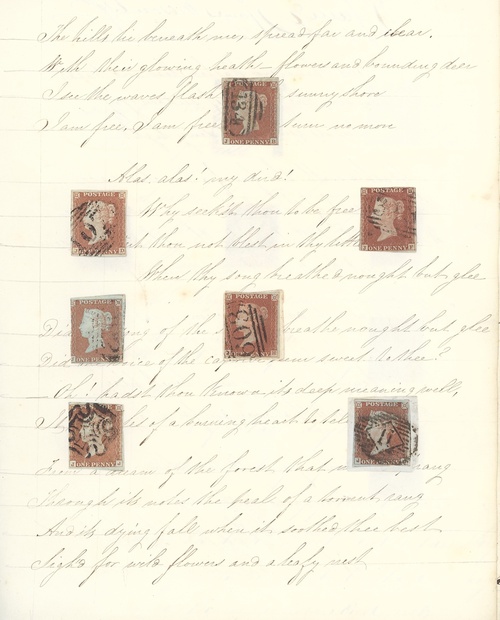 The hills lie beneath me, spread far and clear.
With their glowing heath-flowers and bounding deer
I see the waves flash sunny shore
I am free, I am free return no more
Alas, alas! my bird!
Why seek'st thou to be free
thou not blest in thy
When thy song breathed nought but glee
of the breathe nought but glee
of the sweet to thee?
Oh! hadst thou known its deep meaning well,
of a burning heart to tell
From a dream of the forest that sprang
Through its notes the peal of a torrent rang
And its dying fall when it soothed thee best
Sigh'd for wild flowers and a leafy nest
POSTAGE
ONE PENNY
POSTAGE
ONE PENNY
POSTAGE
ONE PENNY
POSTAGE
ONE PENNY
POSTAGE
ONE PENNY
POSTAGE
ONE PENNY
POSTAGE
ONE PENNY